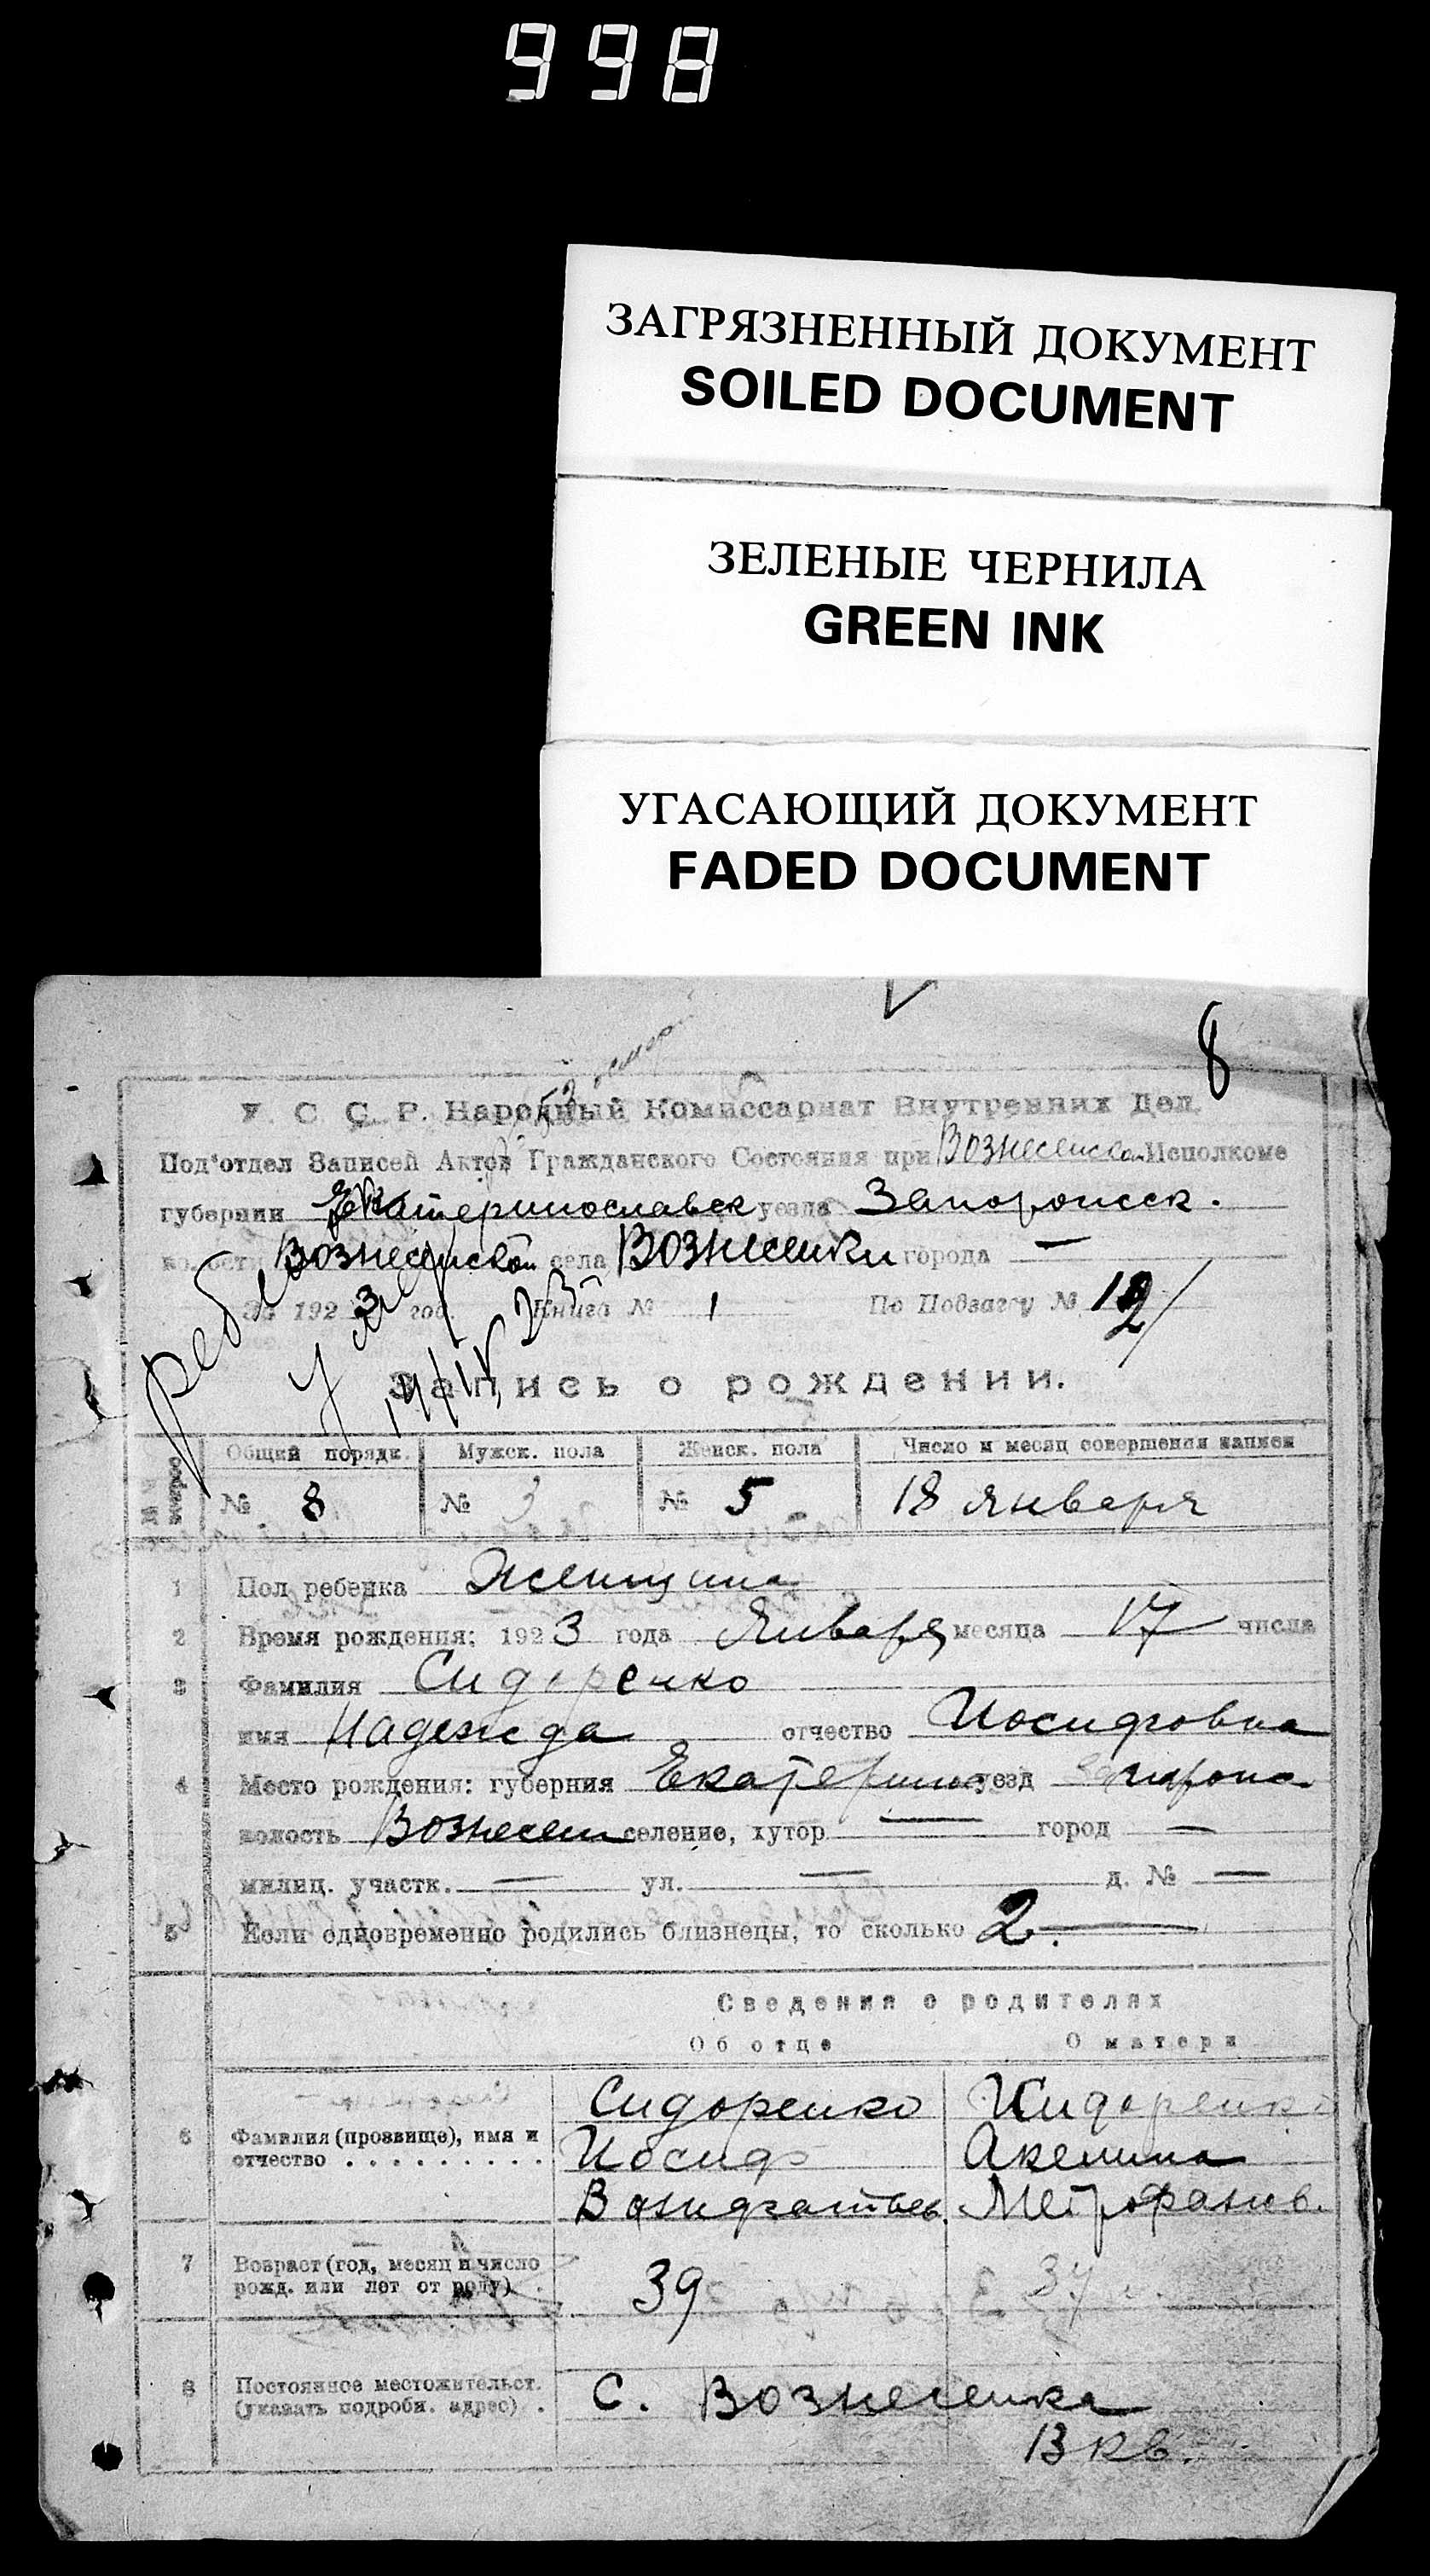 998
ЗАГРЯЗНЕННЫЙ ДОКУМЕНТ
SOILED DOCUMENT
ЗЕЛЕНЫЕ ЧЕРНИЛА
GREEN INK
УГАСАЮЩИЙ ДОКУМЕНТ
FADED DOCUMENT
8
У. С. С. Р. Народный Комиссариат Внутренних Дел.
Под'отдел Записей Актов Гражданского Состояния при Вознесенском Исполкоме
губернии Екатеринославск уезда Запорожск.
волости Вознесенской села Вознесенки города —
За 1923 год Книга № 1 По Подзагсу № 12/
Запись о рождении.
Общий порядк. Мужск. пола Женск. пола Число и месяц совершения записи
№ 8 № 3 № 5 18 января
1 Пол ребенка Женщина
2 Время рождения: 1923 года Января месяца 17 числа
3 Фамилия Сидоренко
имя Надежда отчество Иосифовна
4 Место рождения: губерния Екатерино уезд Запорож
волость Вознесен селение, хутор — город —
милиц. участк. — ул. — д. № —
5 Если одновременно родились близнецы, то сколько 2.
Сведения о родителях
Об отце О матери
6 Фамилия (прозвище), имя и отчество . . . . . . . . .
Сидоренко Сидоренко
Иосиф Акелина
Митрофанов.
7 Возраст (год, месяц и число рожд. или лет от роду) .
39 37
8 Постоянное местожительст. (указать подробн. адрес) .
С. Вознесенка
В кв.